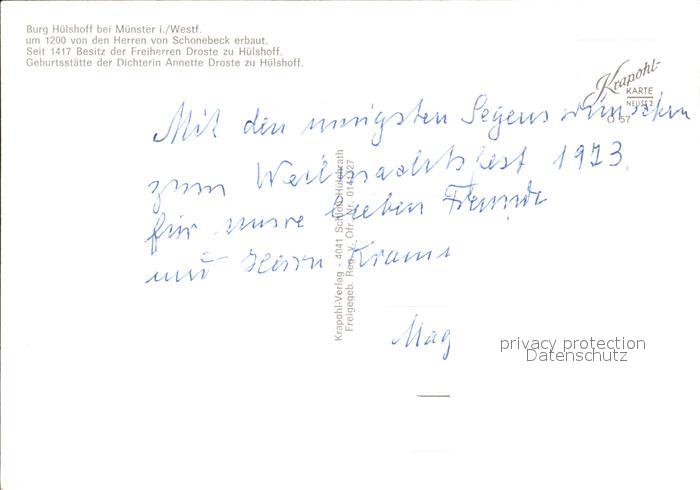 Burg Hülshoff bei Münster i./Westf.
um 1200 von den Herren von Schonebeck erbaut.
Seit 1417 Besitz der Freiherren Droste zu Hülshoff.
Geburtsstätte der Dichterin Annette Droste zu Hülshoff.
Krapohl-
KARTE
NEUSS 2
O 57
Mit den innigsten Segenswünschen
zum Weihnachtsfest 1973.
für unsre lieben Freunde
und Herrn
Mag
Krapohl-Verlag - 4041 Schloß Hülchrath
Freigegeb. Reg.
privacy protection
Datenschutz